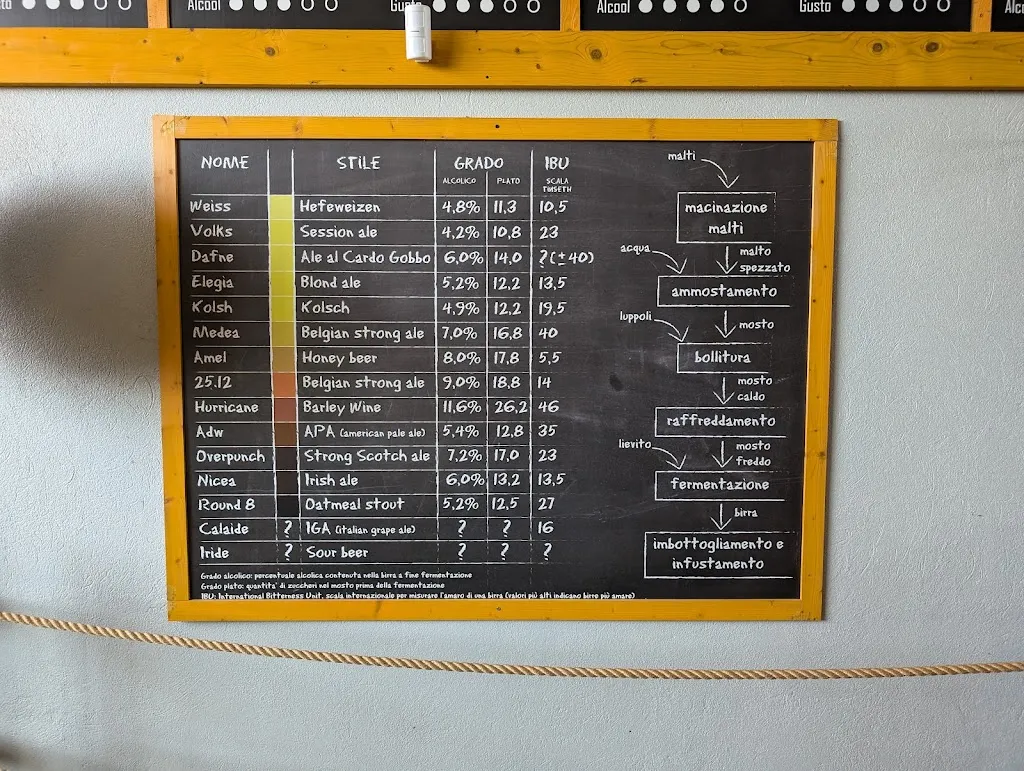 Alcool Gusto Alcool Gusto
NOME STILE GRADO IBU
ALCOLICO PLATO SCALA
TINSETH
Weiss Hefeweizen 4,8% 11,3 10,5
Volks Session ale 4,2% 10,8 23
Dafne Ale al Cardo Gobbo 6,0% 14,0 ?(±40)
Elegia Blond ale 5,2% 12,2 13,5
Kolsh Kolsch 4,9% 12,2 19,5
Medea Belgian strong ale 7,0% 16,8 40
Amel Honey beer 8,0% 17,8 5,5
25.12 Belgian strong ale 9,0% 18,8 14
Hurricane Barley Wine 11,6% 26,2 46
Adw APA (american pale ale) 5,4% 12,8 35
Overpunch Strong Scotch ale 7,2% 17,0 23
Nicea Irish ale 6,0% 13,2 13,5
Round 8 Oatmeal stout 5,2% 12,5 27
Calaide ? IGA (italian grape ale) ? ? 16
Iride ? Sour beer ? ? ?
Grado alcolico: percentuale alcolica contenuta nella birra a fine fermentazione
Grado plato: quantita' di zuccheri nel mosto prima della fermentazione
IBU: International Bitterness Unit, scala internazionale per misurare l'amaro di una birra (valori più alti indicano birre più amare)
malti
macinazione
malti
acqua
malto
spezzato
ammostamento
luppoli
mosto
bollitura
mosto
caldo
raffreddamento
lievito
mosto
freddo
fermentazione
birra
imbottogliamento e
infustamento